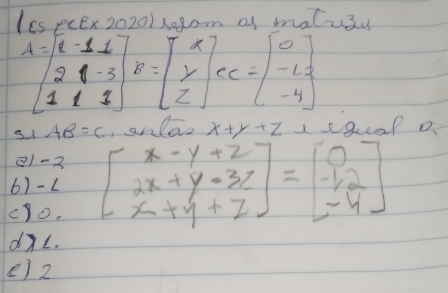 (EsPCEx 2020) sejam as matrizes
A = [1 -1 1; 2 1 -3; 1 1 1] B = [x; y; z] e C = [0; -12; -4]
se AB=C, então x+y+z é igual a
a) -2
b) -1
c) 0.
d) 1.
e) 2
[x - y + z; 2x + y - 3z; x + y + z] = [0; -12; -4]